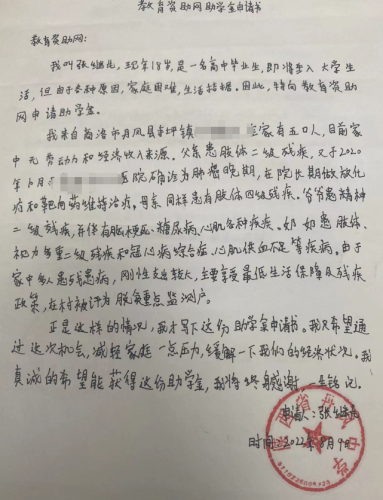 教育资助网助学金申请书
教育资助网：
我叫张继龙，现年18岁，是一名高中毕业生，即将步入大学生
活，但由于各种原因，家庭困难，生活拮据。因此，特向教育资助
网申请助学金。
我来自商洛市丹凤县寺坪镇 家有五口人，目前家
中无劳动力和经济收入来源。父亲患肢体二级残疾，又于2020
年6月 医院确诊为肺癌晚期，在院长期做放化
疗和靶向药维持治疗，母亲同样患有肢体四级残疾。爷爷患精神
二级残疾，并伴有脑梗死、糖尿病、心肌各种疾病。奶奶患肢体、
视力多重二级残疾和冠心病综合症、心肌供血不足等疾病。由于
家中多人患残患病，刚性支出较大，主要享受最低生活保障及残疾
政策，在村被评为脱贫重点监测户。
正是这样的情况，我才写下这份助学金申请书。我只希望通
过这次机会，减轻家庭一点压力，缓解一下我们的经济状况。我
真诚的希望能获得这份助学金，我将终身感谢，一生铭记。
申请人：张继龙
时间：2022年8月9日